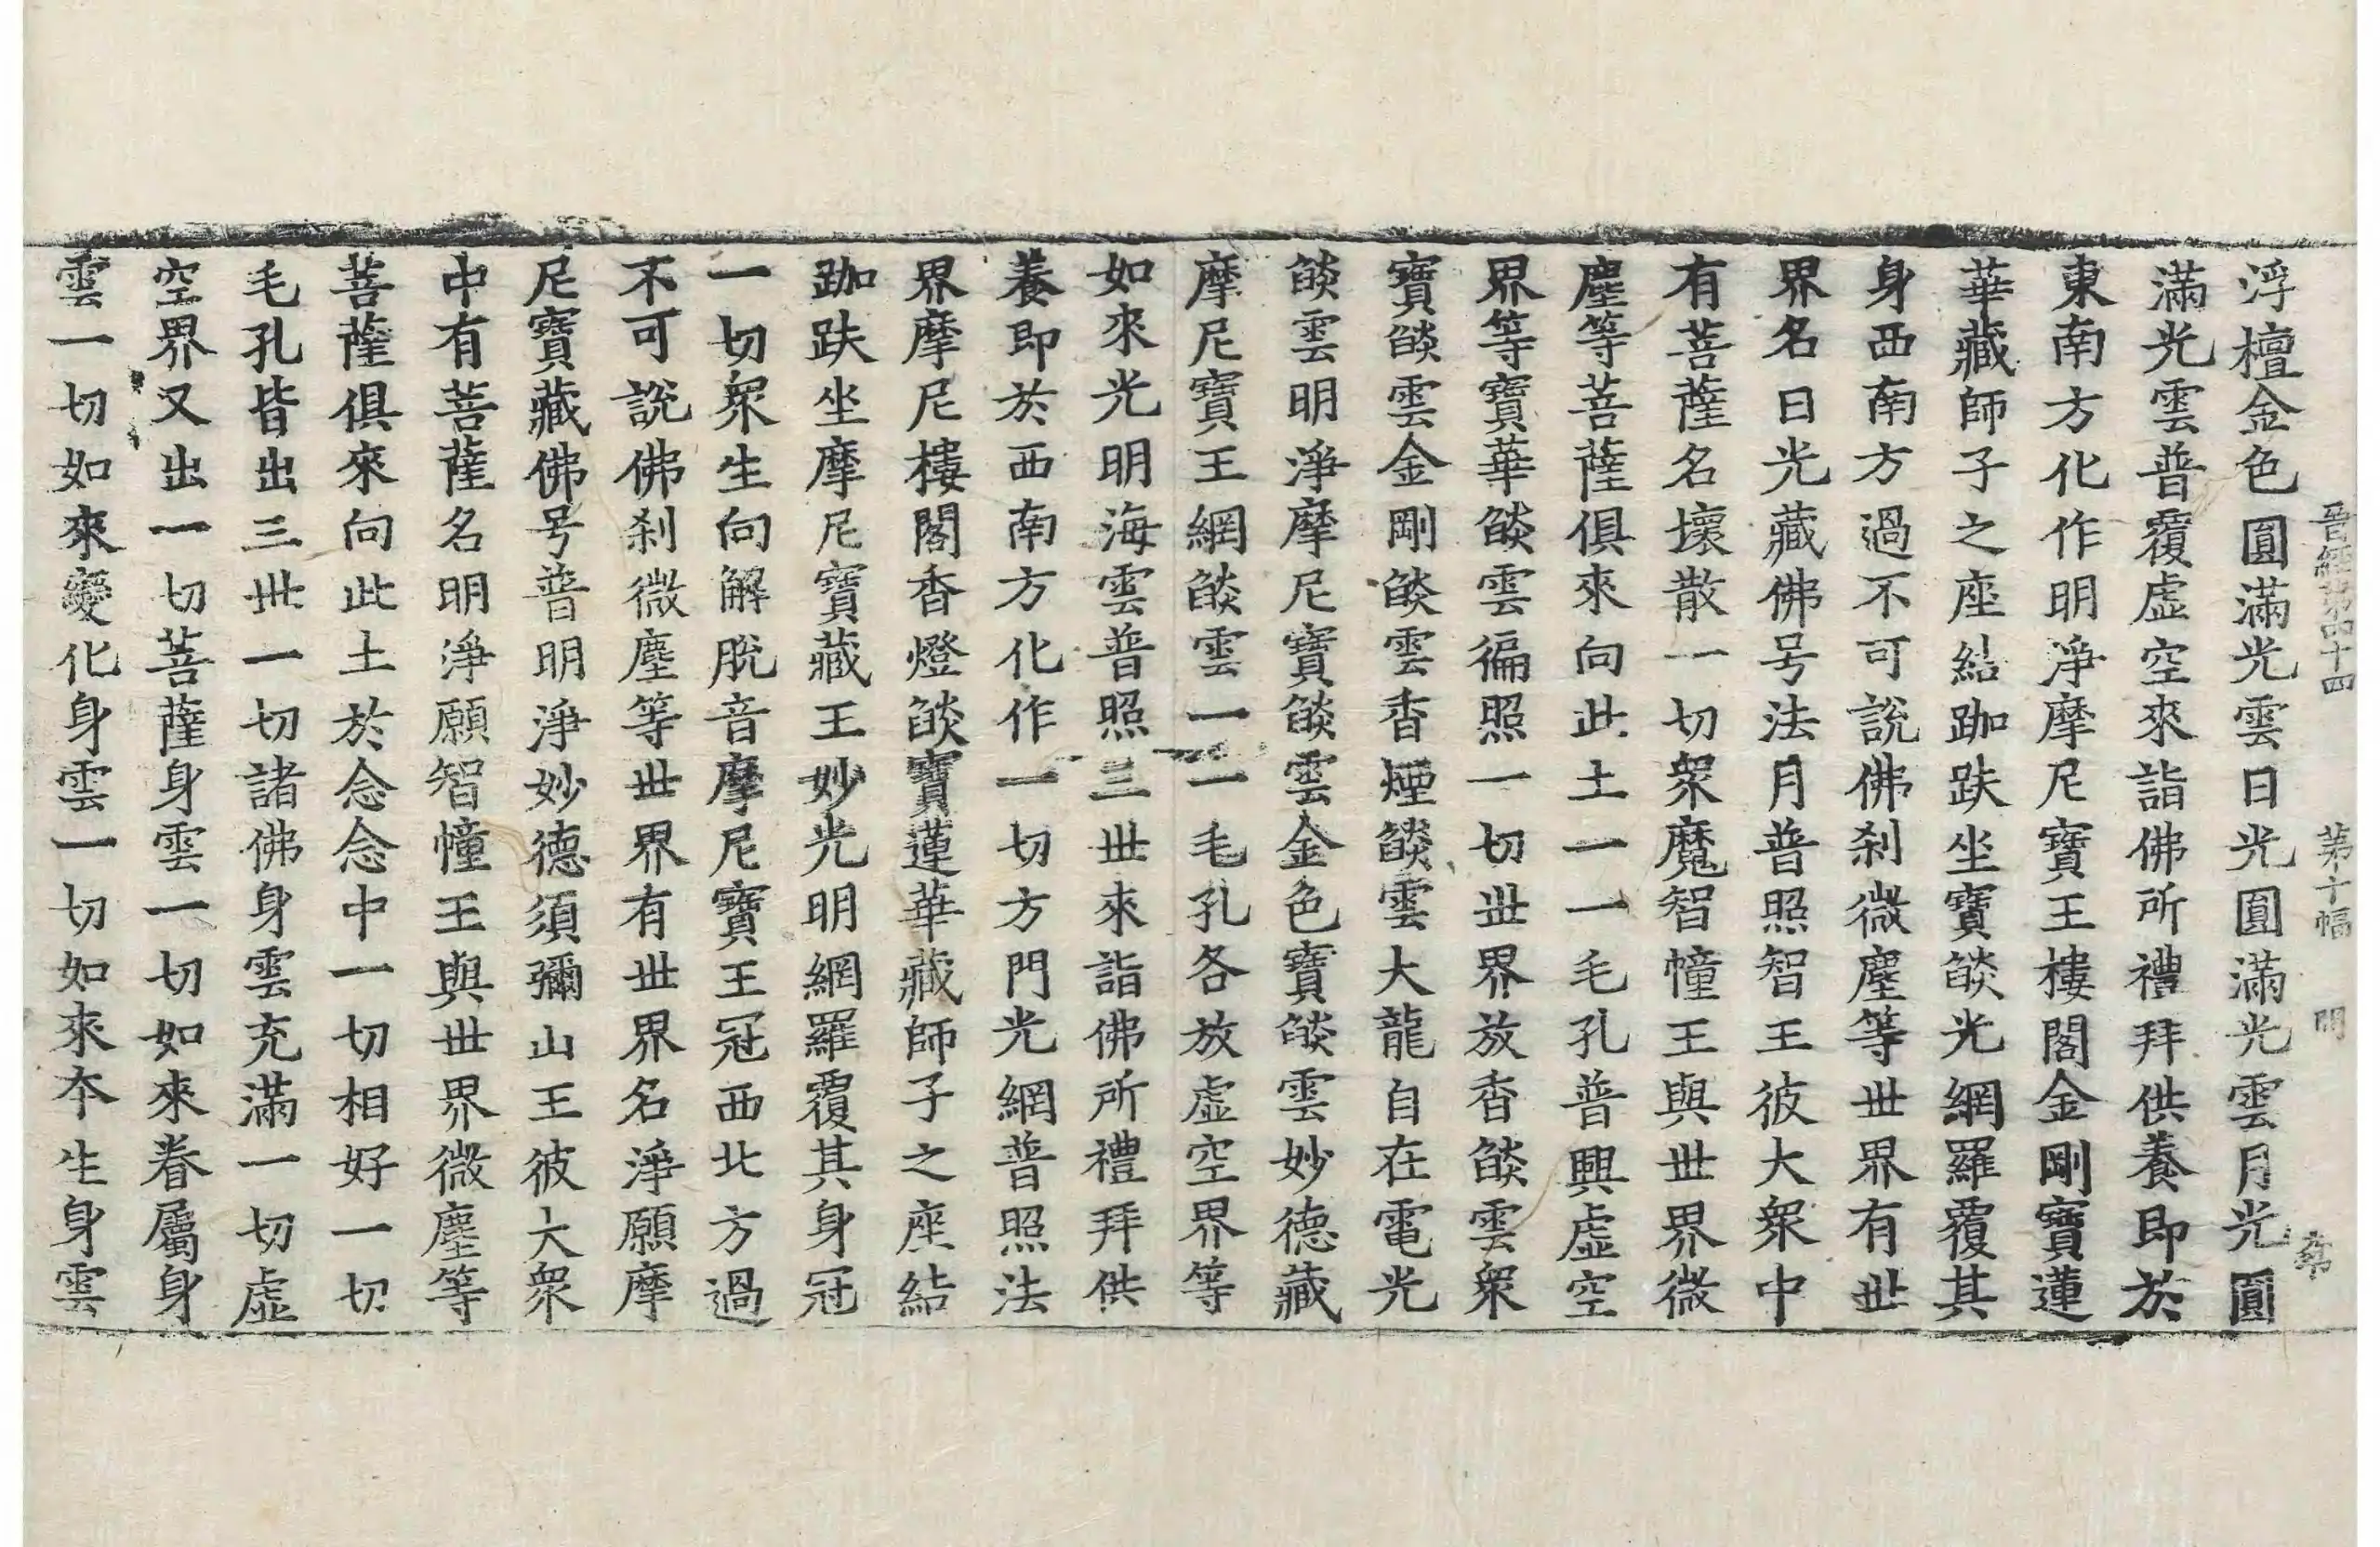 晋經第四十四 第十幅 明 㠪
浮檀金色圓滿光雲日光圓滿光雲月光圓
滿光雲普覆虛空來詣佛所禮拜供養即於
東南方化作明淨摩尼寶王樓閣金剛寶蓮
華藏師子之座結跏趺坐寶㷔光網羅覆其
身西南方過不可說佛刹微塵等世界有世
界名日光藏佛号法月普照智王彼大衆中
有菩薩名壞散一切衆魔智幢王與世界微
塵等菩薩俱來向此土一一毛孔普興虛空
界等寶華㷔雲徧照一切世界放香㷔雲衆
寶㷔雲金剛㷔雲香煙㷔雲大龍自在電光
㷔雲明淨摩尼寶㷔雲金色寶㷔雲妙德藏
摩尼寶王網㷔雲一一毛孔各放虛空界等
如來光明海雲普照三世來詣佛所禮拜供
養即於西南方化作一切方門光網普照法
界摩尼樓閣香燈㷔寶蓮華藏師子之座結
跏趺坐摩尼寶藏王妙光明網羅覆其身冠
一切衆生向解脫音摩尼寶王冠西北方過
不可說佛刹微塵等世界有世界名淨願摩
尼寶藏佛号普明淨妙德須彌山王彼大衆
中有菩薩名明淨願智幢王與世界微塵等
菩薩俱來向此土於念念中一切相好一切
毛孔皆出三世一切諸佛身雲充滿一切虛
空界又出一切菩薩身雲一切如來眷屬身
雲一切如來變化身雲一切如來夲生身雲